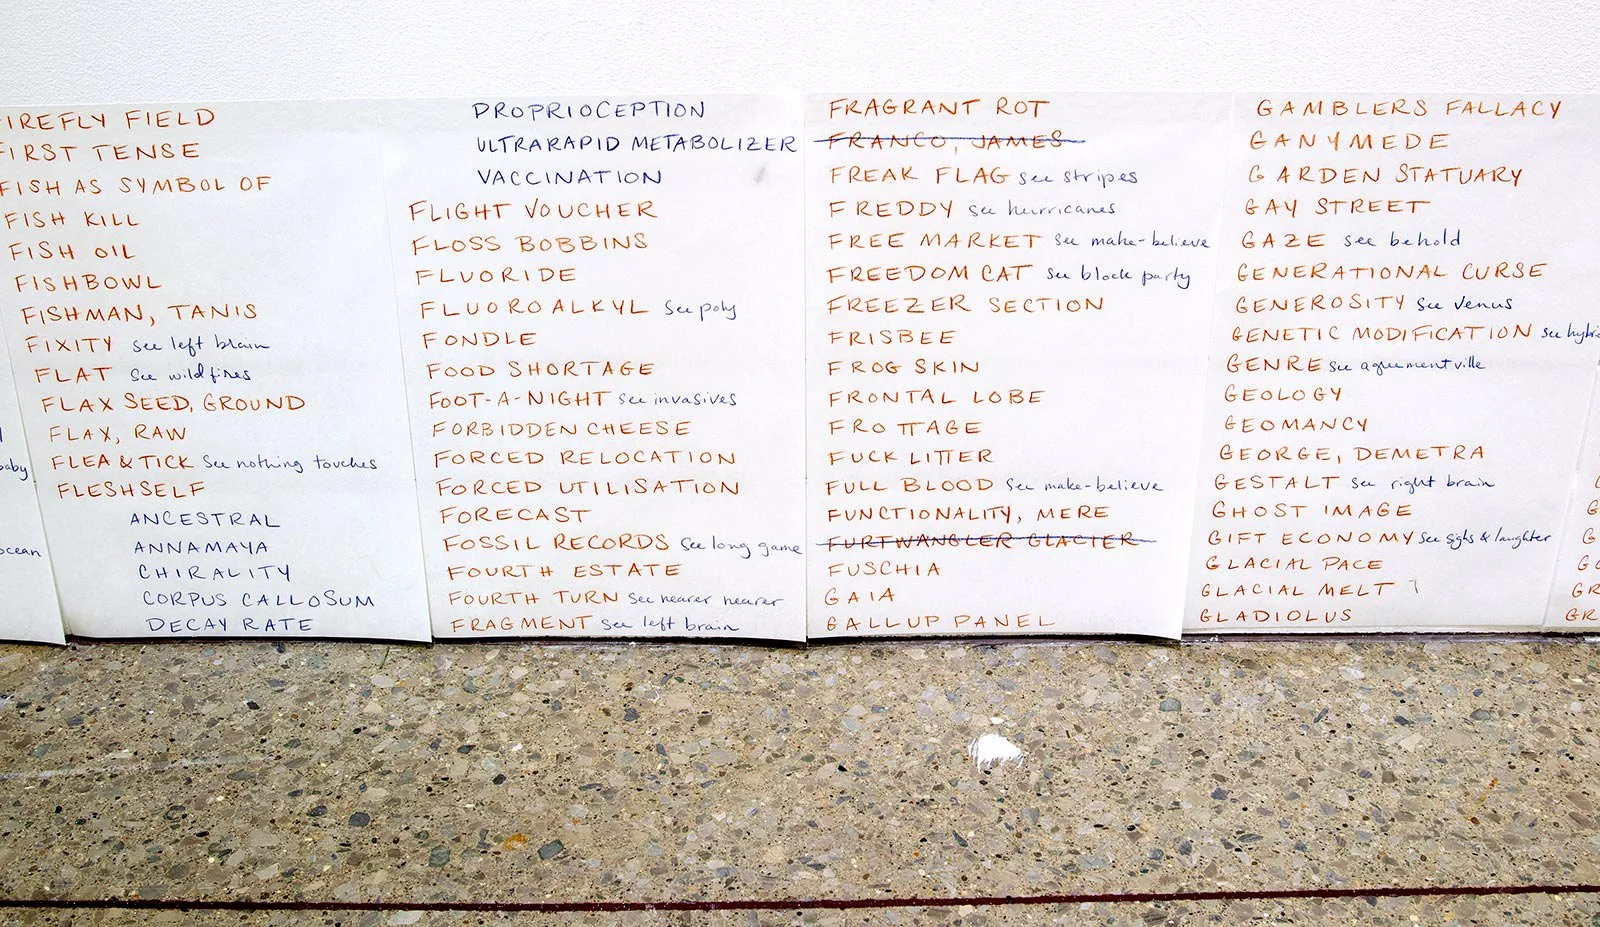 baby
ocean
IREFLY FIELD
FIRST TENSE
FISH AS SYMBOL OF
FISH KILL
FISH OIL
FISHBOWL
FISHMAN, TANIS
FIXITY see left brain
FLAT see wildfires
FLAX SEED, GROUND
FLAX, RAW
FLEA & TICK see nothing touches
FLESHSELF
ANCESTRAL
ANNAMAYA
CHIRALITY
CORPUS CALLOSUM
DECAY RATE
PROPRIOCEPTION
ULTRARAPID METABOLIZER
VACCINATION
FLIGHT VOUCHER
FLOSS BOBBINS
FLUORIDE
FLUOROALKYL see poly
FONDLE
FOOD SHORTAGE
FOOT-A-NIGHT see invasives
FORBIDDEN CHEESE
FORCED RELOCATION
FORCED UTILISATION
FORECAST
FOSSIL RECORDS see long game
FOURTH ESTATE
FOURTH TURN see nearer nearer
FRAGMENT see left brain
FRAGRANT ROT
FRANCO, JAMES
FREAK FLAG see stripes
FREDDY see hurricanes
FREE MARKET see make-believe
FREEDOM CAT see block party
FREEZER SECTION
FRISBEE
FROG SKIN
FRONTAL LOBE
FROTTAGE
FUCK LITTER
FULL BLOOD see make-believe
FUNCTIONALITY, MERE
FURTWANGLER GLACIER
FUSCHIA
GAIA
GALLUP PANEL
GAMBLERS FALLACY
GANYMEDE
GARDEN STATUARY
GAY STREET
GAZE see behold
GENERATIONAL CURSE
GENEROSITY see venus
GENETIC MODIFICATION see hybri
GENRE see agreementville
GEOLOGY
GEOMANCY
GEORGE, DEMETRA
GESTALT see right brain
GHOST IMAGE
GIFT ECONOMY see sighs & laughter
GLACIAL PACE
GLACIAL MELT
GLADIOLUS
G
G
GL
GR
GR